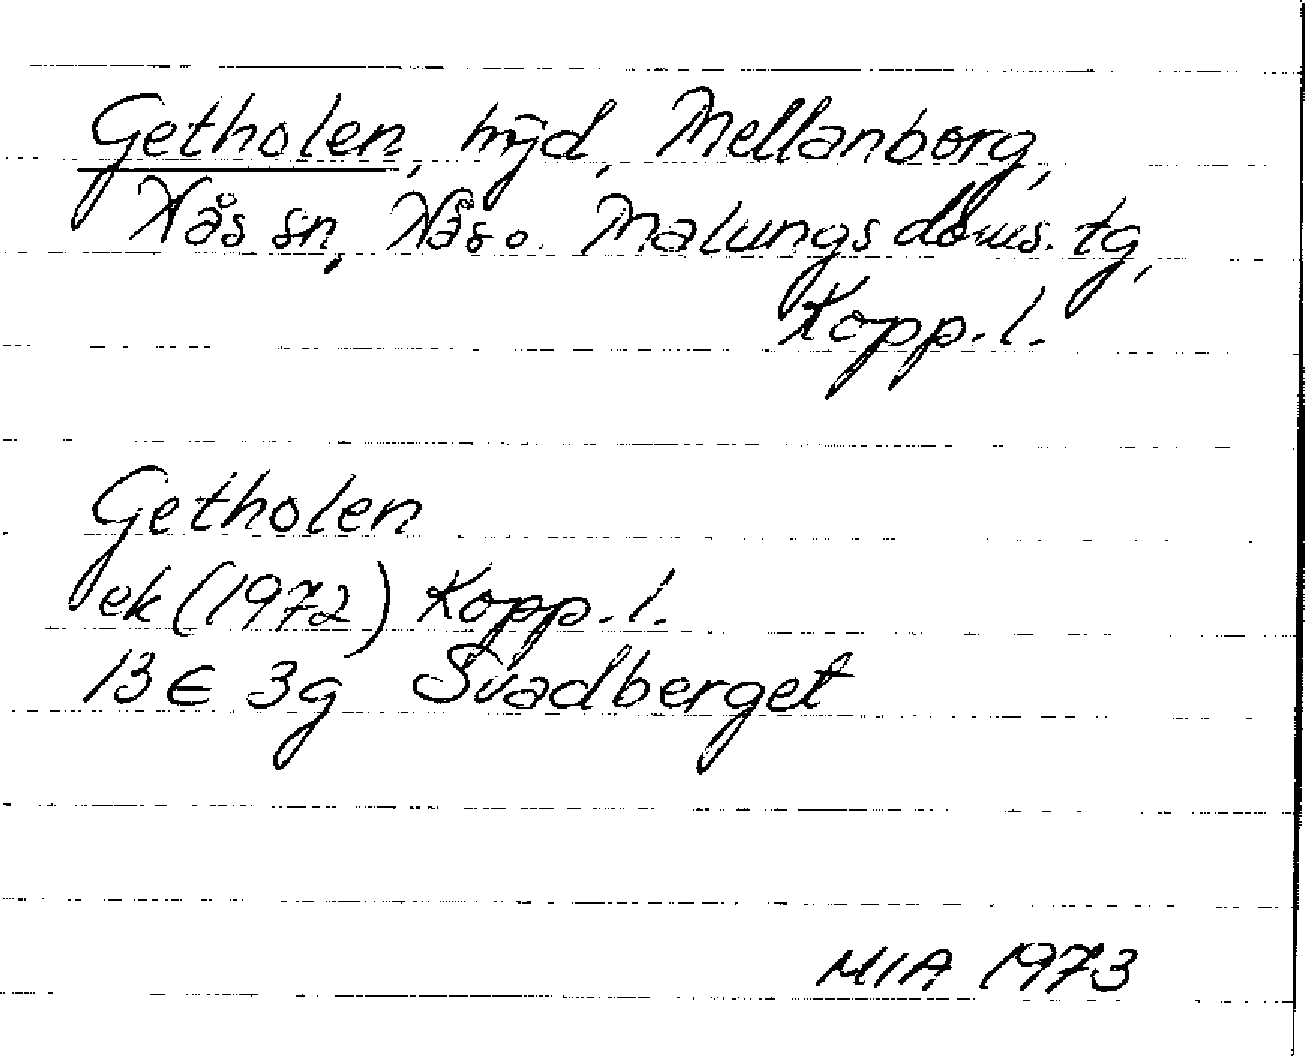 Getholen, höjd, Mellanborg,
Nås sn, Nås o. Malungs doms. tg,
Kopp. l.
Getholen
ek (1972) Kopp. l.
13 E 3g Svadberget
MIA 1973